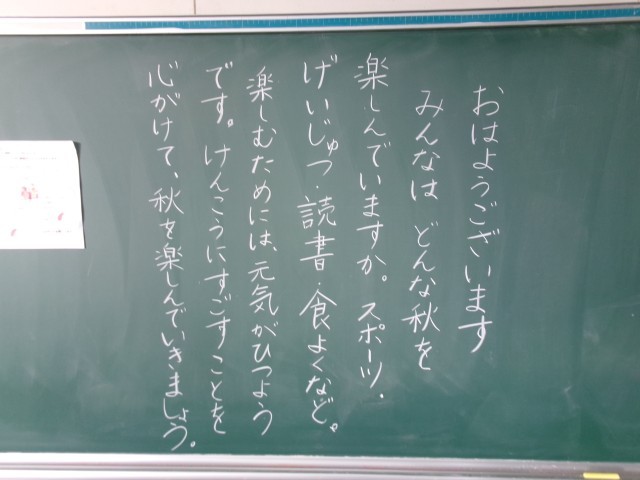 おはようございます
みんなは どんな秋を
楽しんでいますか。スポーツ・
げいじゅつ・読書・食よくなど。
楽しむためには、元気がひつよう
です。けんこうにすごすことを
心がけて、秋を楽しんでいきましょう。